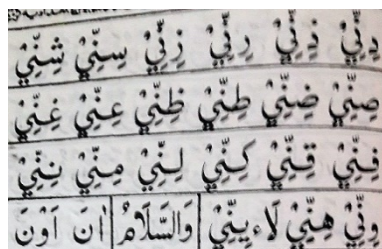 دِنِّيْ ذِنِّيْ رِنِّيْ زِنِّيْ سِنِّيْ شِنِّيْ
صِنِّيْ ضِنِّيْ طِنِّيْ ظِنِّيْ عِنِّيْ غِنِّيْ
فِنِّيْ قِنِّيْ كِنِّيْ لِنِّيْ مِنِّيْ نِنِّيْ
وِنِّيْ هِنِّيْ لَاءِ يِنِّيْ وَالسَّلَامُ اٰنَ اَوْنَ